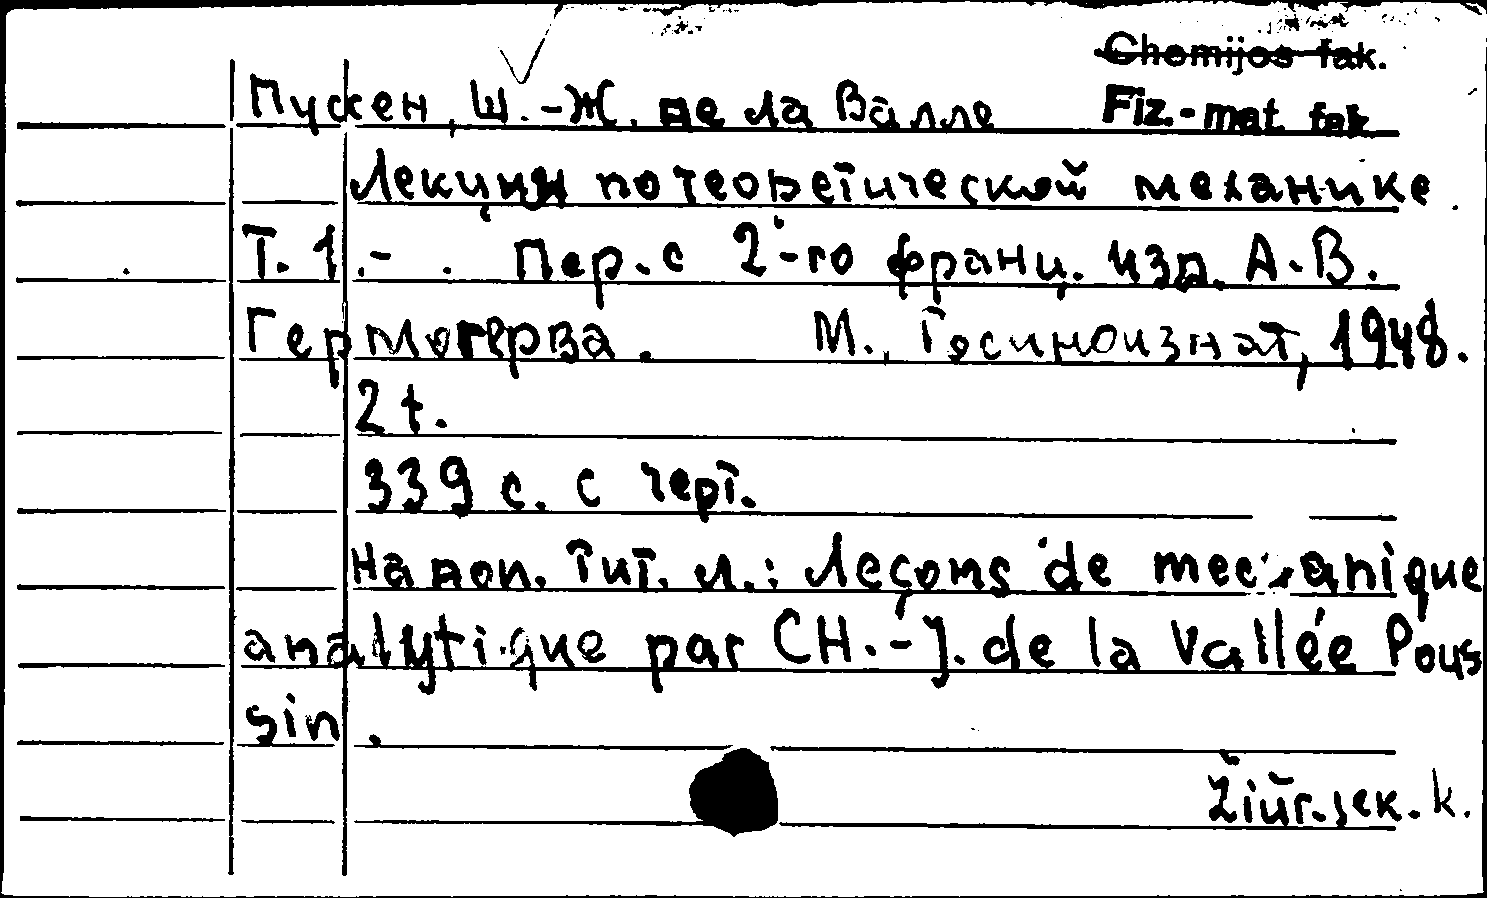 Chemijos fak.
Пуссен, Ш.-Ж. де ла Валле Fiz.-mat. fak.
Лекции по теоретической механике.
Т. 1.- . Пер. с 2-го франц. изд. А.В.
Гермогерва. М., Госиноиздат, 1948.
2 t.
339 с. с черт.
На доп. тит. л.: Leçons de mecanique
analytique par CH.-J. de la Vallée Pous
sin.
Žiūr. sek. k.